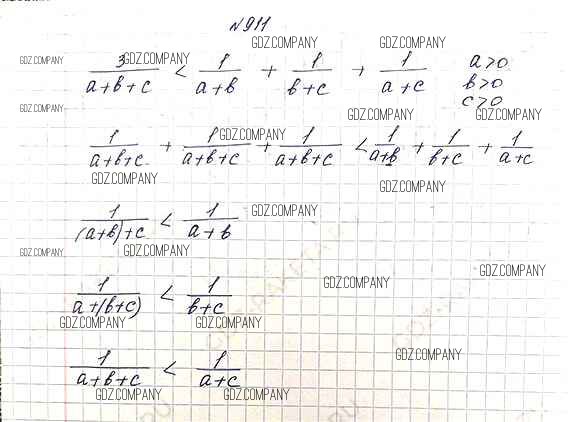 N911
GDZ.COMPANY
GDZ.COMPANY GDZ.COMPANY GDZ.COMPANY
3/(a+b+c) < 1/(a+b) + 1/(b+c) + 1/(a+c) a>0
b>0
c>0
GDZ.COMPANY GDZ.COMPANY GDZ.COMPANY
GDZ.COMPANY
1/(a+b+c) + 1/(a+b+c) + 1/(a+b+c) < 1/(a+b) + 1/(b+c) + 1/(a+c)
GDZ.COMPANY GDZ.COMPANY
GDZ.COMPANY
1/((a+b)+c) < 1/(a+b)
GDZ.COMPANY GDZ.COMPANY
GDZ.COMPANY GDZ.COMPANY
1/(a+(b+c)) < 1/(b+c)
GDZ.COMPANY GDZ.COMPANY
GDZ.COMPANY
1/(a+b+c) < 1/(a+c)
GDZ.COMPANY GDZ.COMPANY